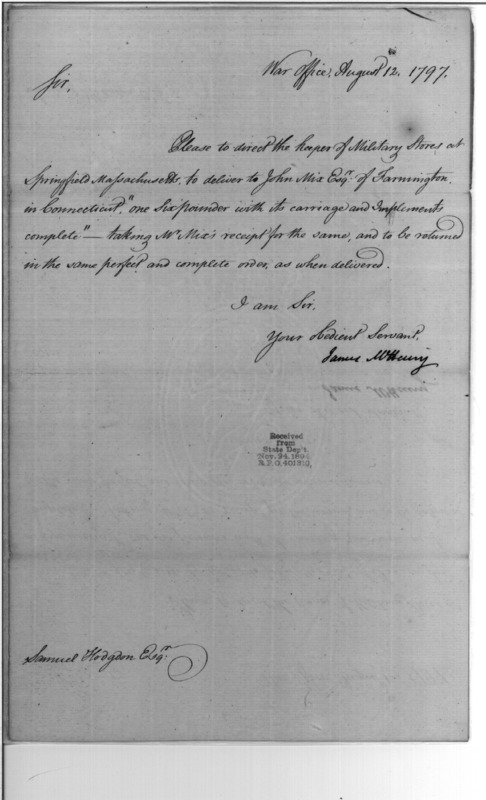 War Office, August 12. 1797.
Sir,
Please to direct the keeper of Military Stores at
Springfield Massachusetts, to deliver to John Mix Esqr. of Farmington
in Connecticut, "one Six pounder with its carriage and Implements
complete" — taking Mr. Mix's receipt for the same, and to be returned
in the same perfect and complete order, as when delivered.
I am Sir,
Your Obedient Servant,
James McHenry
Received
from
State Dep't.
Nov. 24, 1894
Samuel Hodgdon Esqr.